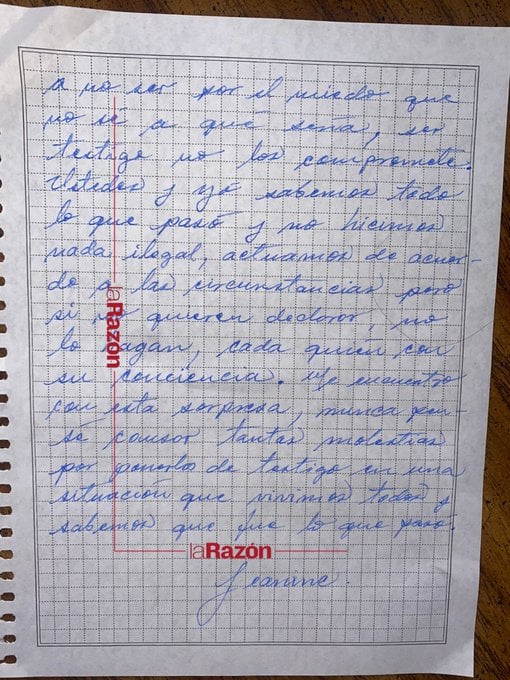 a no ser por el miedo que
no sé a qué sería, ser
testigo no los compromete.
Ustedes y yo sabemos todo
lo que pasó y no hicimos
nada ilegal, actuamos de acuer-
do a las circunstancias pero
si no quieren declarar, no
lo agan, cada quien con
su conciencia. Me encuentro
con esta sorpresa, nunca pen-
sé causar tantas molestias
por ponerlos de testigo en una
situación que vivimos todos y
sabemos que fue lo que pasó.
Jeanine.
laRazón
laRazón